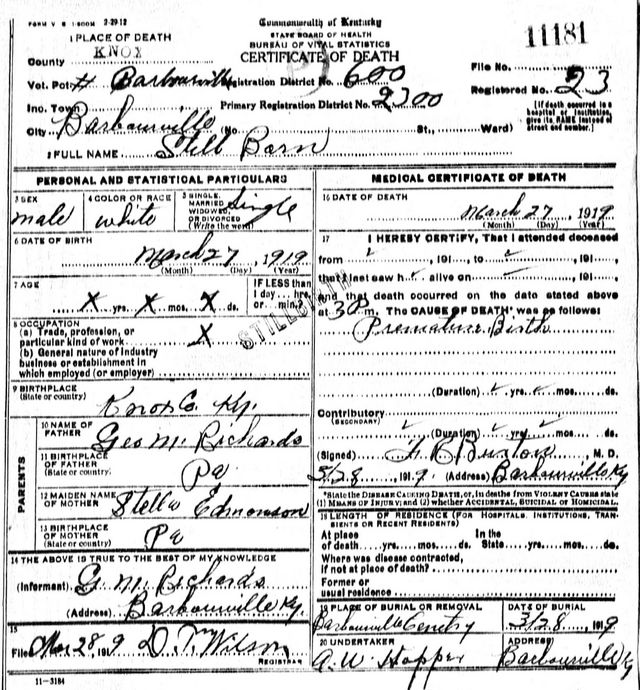 FORM V S 1-500M 2-29-12
Commonwealth of Kentucky
STATE BOARD OF HEALTH
BUREAU OF VITAL STATISTICS
CERTIFICATE OF DEATH
11181
1 PLACE OF DEATH
County KNOX
File No.
Vot. Pct. # Barbourville Registration District No. 600
Registered No. 23
Inc. Town
Primary Registration District No. 2300
[If death occurred in a hospital or institution, give its NAME instead of street and number.]
City Barbourville (No. St., Ward)
2 FULL NAME Still Born
PERSONAL AND STATISTICAL PARTICULARS
3 SEX male
4 COLOR OR RACE white
5 SINGLE, MARRIED, WIDOWED, OR DIVORCED (Write the word) Single
6 DATE OF BIRTH
March 27, 1919
(Month) (Day) (Year)
7 AGE
X yrs. X mos. X ds.
IF LESS than 1 day... hrs. or min.?
STILLBIRTH
8 OCCUPATION
(a) Trade, profession, or particular kind of work X
(b) General nature of industry business or establishment in which employed (or employer)
9 BIRTHPLACE
(State or country)
Knox Co. Ky.
PARENTS
10 NAME OF FATHER Geo M. Richards
11 BIRTHPLACE OF FATHER (State or country) Pa
12 MAIDEN NAME OF MOTHER Stella Edmonson
13 BIRTHPLACE OF MOTHER (State or country) Pa
14 THE ABOVE IS TRUE TO THE BEST OF MY KNOWLEDGE
(Informant) G. M. Richards
(Address) Barbourville Ky.
15
Filed Mar 28, 1919 D. T. Wilson
REGISTRAR
11-3184
MEDICAL CERTIFICATE OF DEATH
16 DATE OF DEATH
March 27, 1919
(Month) (Day) (Year)
17 I HEREBY CERTIFY, That I attended deceased
from , 191 , to , 191 ,
that I last saw h alive on , 191 ,
and that death occurred on the date stated above
at 30 m. The CAUSE OF DEATH* was as follows:
Premature Birth
(Duration) yrs. mos. ds.
Contributory
(SECONDARY)
(Duration) yrs. mos. ds.
(Signed) Burton, M. D.
3/28, 1919 (Address) Barbourville Ky
*State the DISEASE CAUSING DEATH, or, in deaths from VIOLENT CAUSES state (1) MEANS OF INJURY; and (2) whether ACCIDENTAL, SUICIDAL or HOMICIDAL.
18 LENGTH OF RESIDENCE (FOR HOSPITALS, INSTITUTIONS, TRANSIENTS OR RECENT RESIDENTS)
At place of death yrs. mos. ds. In the State yrs. mos. ds.
Where was disease contracted, if not at place of death?
Former or usual residence
19 PLACE OF BURIAL OR REMOVAL
Barbourville Cemtry
DATE OF BURIAL
3/28, 1919
20 UNDERTAKER
A. W. Hopper
ADDRESS
Barbourville Ky